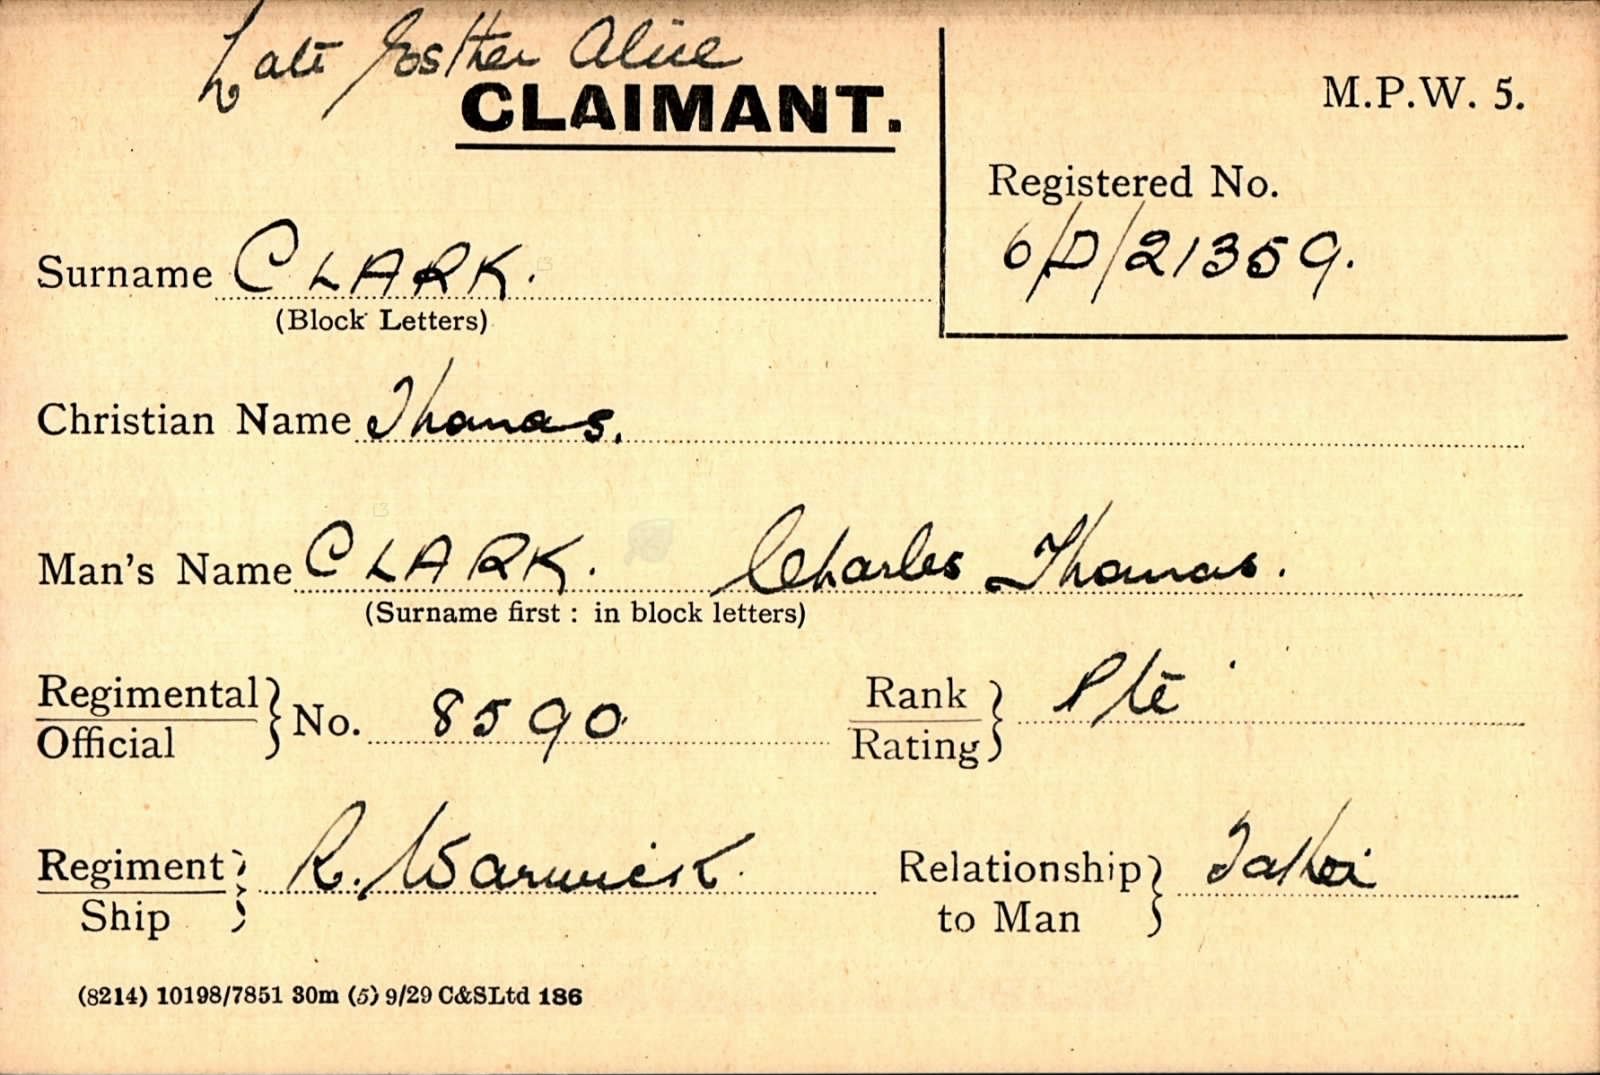 Late Esther Alice
CLAIMANT.
M.P.W. 5.
Registered No.
6/D/21359.
Surname CLARK.
(Block Letters)
Christian Name Thomas.
Man's Name CLARK. Charles Thomas.
(Surname first : in block letters)
Regimental Official } No. 8590 Rank Rating } Pte
Regiment Ship } R. Warwick. Relationship to Man } Father
(8214) 10198/7851 30m (5) 9/29 C&SLtd 186